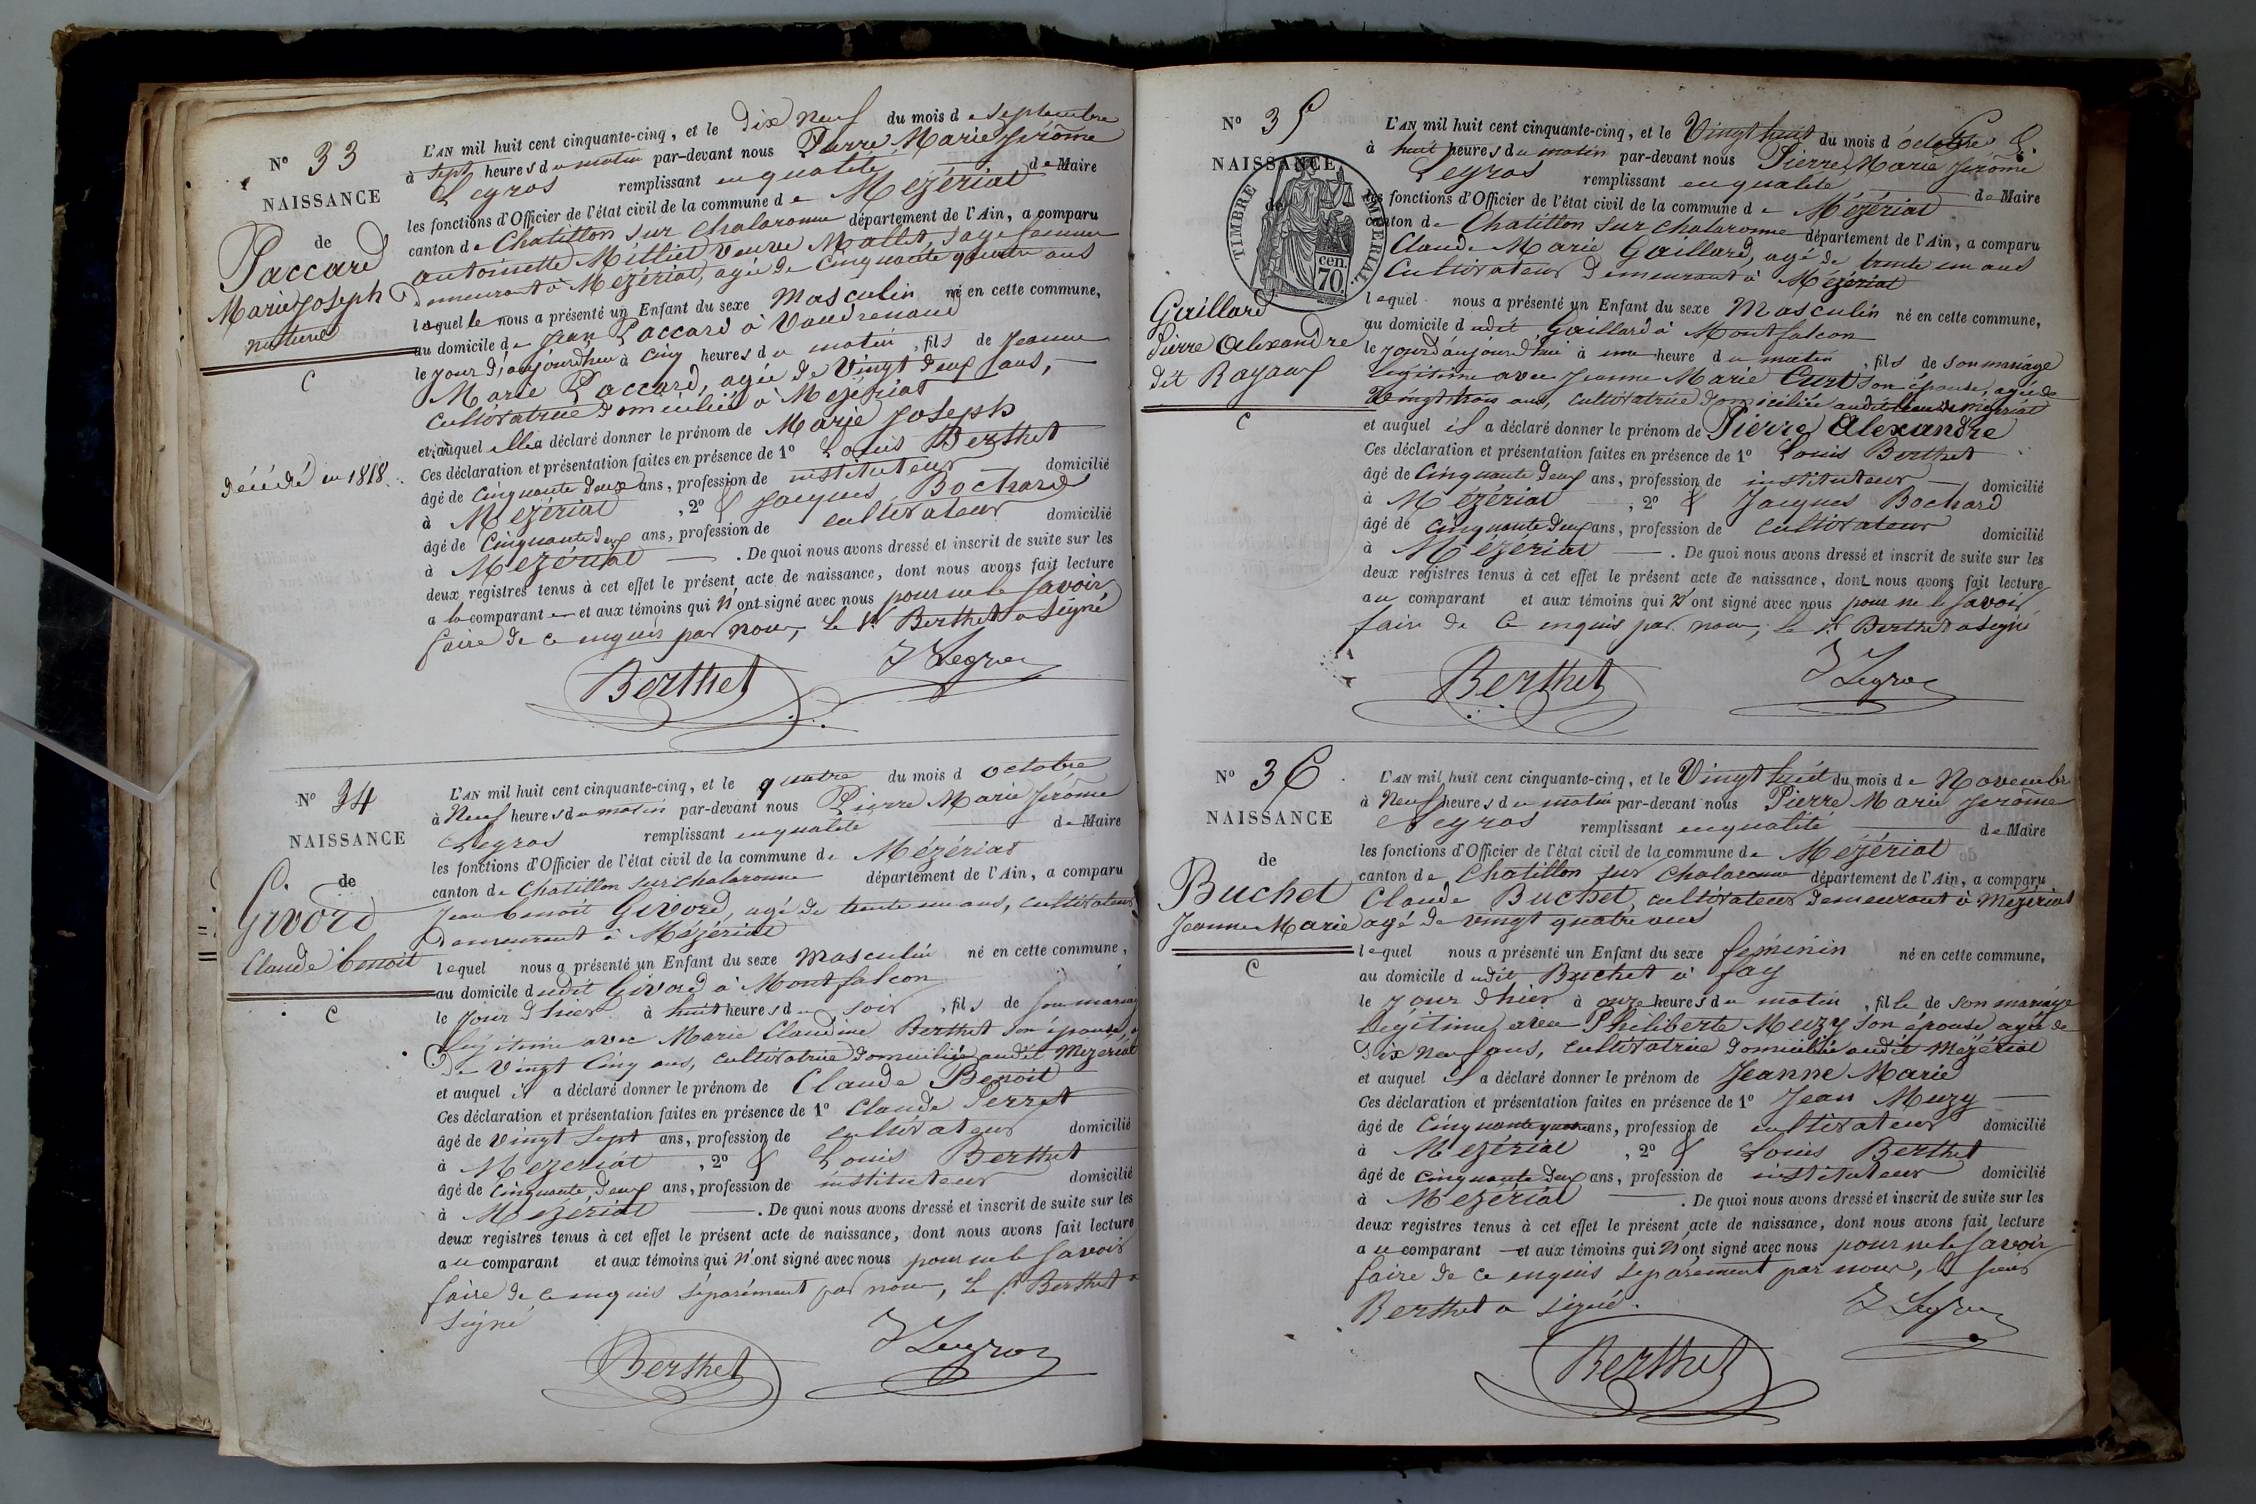 N° 33
NAISSANCE
de
Paccard
Marie Joseph
naturel
C
décédé en 1818.
L'AN mil huit cent cinquante-cinq, et le dix neuf du mois de septembre
à sept heures du matin par-devant nous Pierre Marie Jérôme
Legros remplissant en qualité de Maire
les fonctions d'Officier de l'état civil de la commune de Mézériat
canton de Chatillon sur Chalaronne département de l'Ain, a comparu
antoinette Milliet veuve Mallet sage femme
demeurant à Mézériat, agée de Cinquante quatre ans
laquelle nous a présenté un Enfant du sexe Masculin né en cette commune,
au domicile de Jean Paccard à Vaudrenand
le jour d'aujourdhui à cinq heures du matin, fils de Jeanne
Marie Paccard, agée de Vingt deux ans,
cultivatrice domiciliée à Mézériat
et auquel elle a déclaré donner le prénom de Marie Joseph
Ces déclaration et présentation faites en présence de 1° Louis Berthet
âgé de Cinquante deux ans, profession de instituteur domicilié
à Mézériat, 2° & Jacques Bochard
âgé de Cinquante deux ans, profession de cultivateur domicilié
à Mézériat. De quoi nous avons dressé et inscrit de suite sur les
deux registres tenus à cet effet le présent acte de naissance, dont nous avons fait lecture
a la comparante et aux témoins qui n'ont signé avec nous pour ne le savoir
faire de ce enquis par nous, le Sr Berthet a signé
Berthet J Legros
N° 34
NAISSANCE
de
Givord
Claude Benoit
C
L'AN mil huit cent cinquante-cinq, et le quatre du mois d octobre
à Neuf heures du matin par-devant nous Pierre Marie Jérôme
Legros remplissant en qualité de Maire
les fonctions d'Officier de l'état civil de la commune de Mézériat
canton de Chatillon sur Chalaronne département de l'Ain, a comparu
Jean benoit Givord, agé de trente un ans, cultivateur
demeurant à Mézériat
lequel nous a présenté un Enfant du sexe Masculin né en cette commune,
au domicile dudit Givord à Montfalcon
le jour d'hier à huit heures du soir, fils de son mariage
légitime avec Marie Claudine Berthet son épouse,
de Vingt Cinq ans, cultivatrice domiciliée audit Mézériat
et auquel il a déclaré donner le prénom de Claude Benoit
Ces déclaration et présentation faites en présence de 1° Claude Perret
âgé de vingt sept ans, profession de cultivateur domicilié
à Mézériat, 2° & Louis Berthet
âgé de Cinquante deux ans, profession de instituteur domicilié
à Mézériat. De quoi nous avons dressé et inscrit de suite sur les
deux registres tenus à cet effet le présent acte de naissance, dont nous avons fait lecture
au comparant et aux témoins qui n'ont signé avec nous pour ne le savoir
faire de ce enquis séparément par nous, le Sr Berthet a
signé
Berthet J Legros
N° 35
NAISSANCE
de
TIMBRE IMPERIAL
70 cen.
Gaillard
Pierre Alexandre
dit Rayaux
C
L'AN mil huit cent cinquante-cinq, et le Vingt huit du mois d'octobre
à huit heures du matin par-devant nous Pierre Marie Jérôme
Legros remplissant en qualité de Maire
les fonctions d'Officier de l'état civil de la commune de Mézériat
canton de Chatillon sur Chalaronne département de l'Ain, a comparu
Claude Marie Gaillard, agé de trente un ans
cultivateur demeurant à Mézériat
lequel nous a présenté un Enfant du sexe Masculin né en cette commune,
au domicile dudit Gaillard à Montfalcon
le jour d'aujourd'hui à une heure du matin, fils de son mariage
légitime avec Jeanne Marie Curt son épouse, agée de
Vingt trois ans, cultivatrice domiciliée audit lieu de Mézériat
et auquel il a déclaré donner le prénom de Pierre Alexandre
Ces déclaration et présentation faites en présence de 1° Louis Berthet
âgé de Cinquante deux ans, profession de instituteur domicilié
à Mézériat, 2° & Jacques Bochard
âgé de Cinquante deux ans, profession de cultivateur domicilié
à Mézériat. De quoi nous avons dressé et inscrit de suite sur les
deux registres tenus à cet effet le présent acte de naissance, dont nous avons fait lecture
au comparant et aux témoins qui n'ont signé avec nous pour ne le savoir
faire de ce enquis par nous, le Sr Berthet a signé
Berthet J Legros
N° 36
NAISSANCE
de
Buchet
Jeanne Marie
C
L'AN mil huit cent cinquante-cinq, et le Vingt huit du mois de Novembre
à Neuf heures du matin par-devant nous Pierre Marie Jérôme
Legros remplissant en qualité de Maire
les fonctions d'Officier de l'état civil de la commune de Mézériat
canton de Chatillon sur Chalaronne département de l'Ain, a comparu
Claude Buchet, cultivateur demeurant à Mézériat
agé de vingt quatre ans
lequel nous a présenté un Enfant du sexe féminin né en cette commune,
au domicile dudit Buchet à fay
le jour d'hier à onze heures du matin, fille de son mariage
légitime avec Philiberte Muzy son épouse, agée de
dix neuf ans, cultivatrice domiciliée audit Mézériat
et auquel il a déclaré donner le prénom de Jeanne Marie
Ces déclaration et présentation faites en présence de 1° Jean Muzy
âgé de Cinquante quatre ans, profession de cultivateur domicilié
à Mézériat, 2° & Louis Berthet
âgé de Cinquante deux ans, profession de instituteur domicilié
à Mézériat. De quoi nous avons dressé et inscrit de suite sur les
deux registres tenus à cet effet le présent acte de naissance, dont nous avons fait lecture
au comparant et aux témoins qui n'ont signé avec nous pour ne le savoir
faire de ce enquis séparément par nous, le sieur
Berthet a signé.
J Legros
Berthet